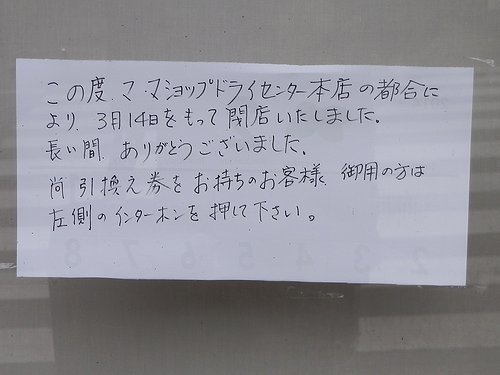 この度、マ・マショップドライセンター本店の都合に
より、3月14日をもって閉店いたしました。
長い間、ありがとうございました。
尚 引換え券をお持ちのお客様、御用の方は
左側のインターホンを押して下さい。